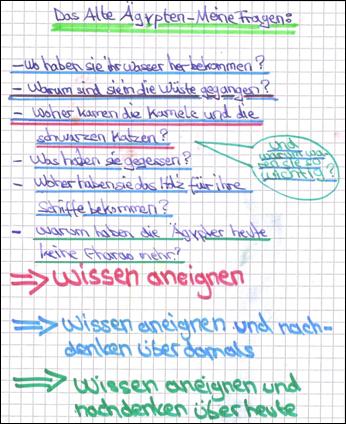 Das Alte Ägypten - Meine Fragen:
- Wo haben sie ihr Wasser her bekommen?
- Warum sind sie in die Wüste gegangen?
- Woher kamen die Kamele und die
schwarzen Katzen?
und
warum wa-
ren sie so
wichtig?
- Was haben sie gegessen?
- Woher haben sie das Holz für ihre
Schiffe bekommen?
- Warum haben die Ägypter heute
keine Pharao mehr?
⇒ Wissen aneignen
⇒ Wissen aneignen und nach-
denken über damals
⇒ Wissen aneignen und
nachdenken über heute